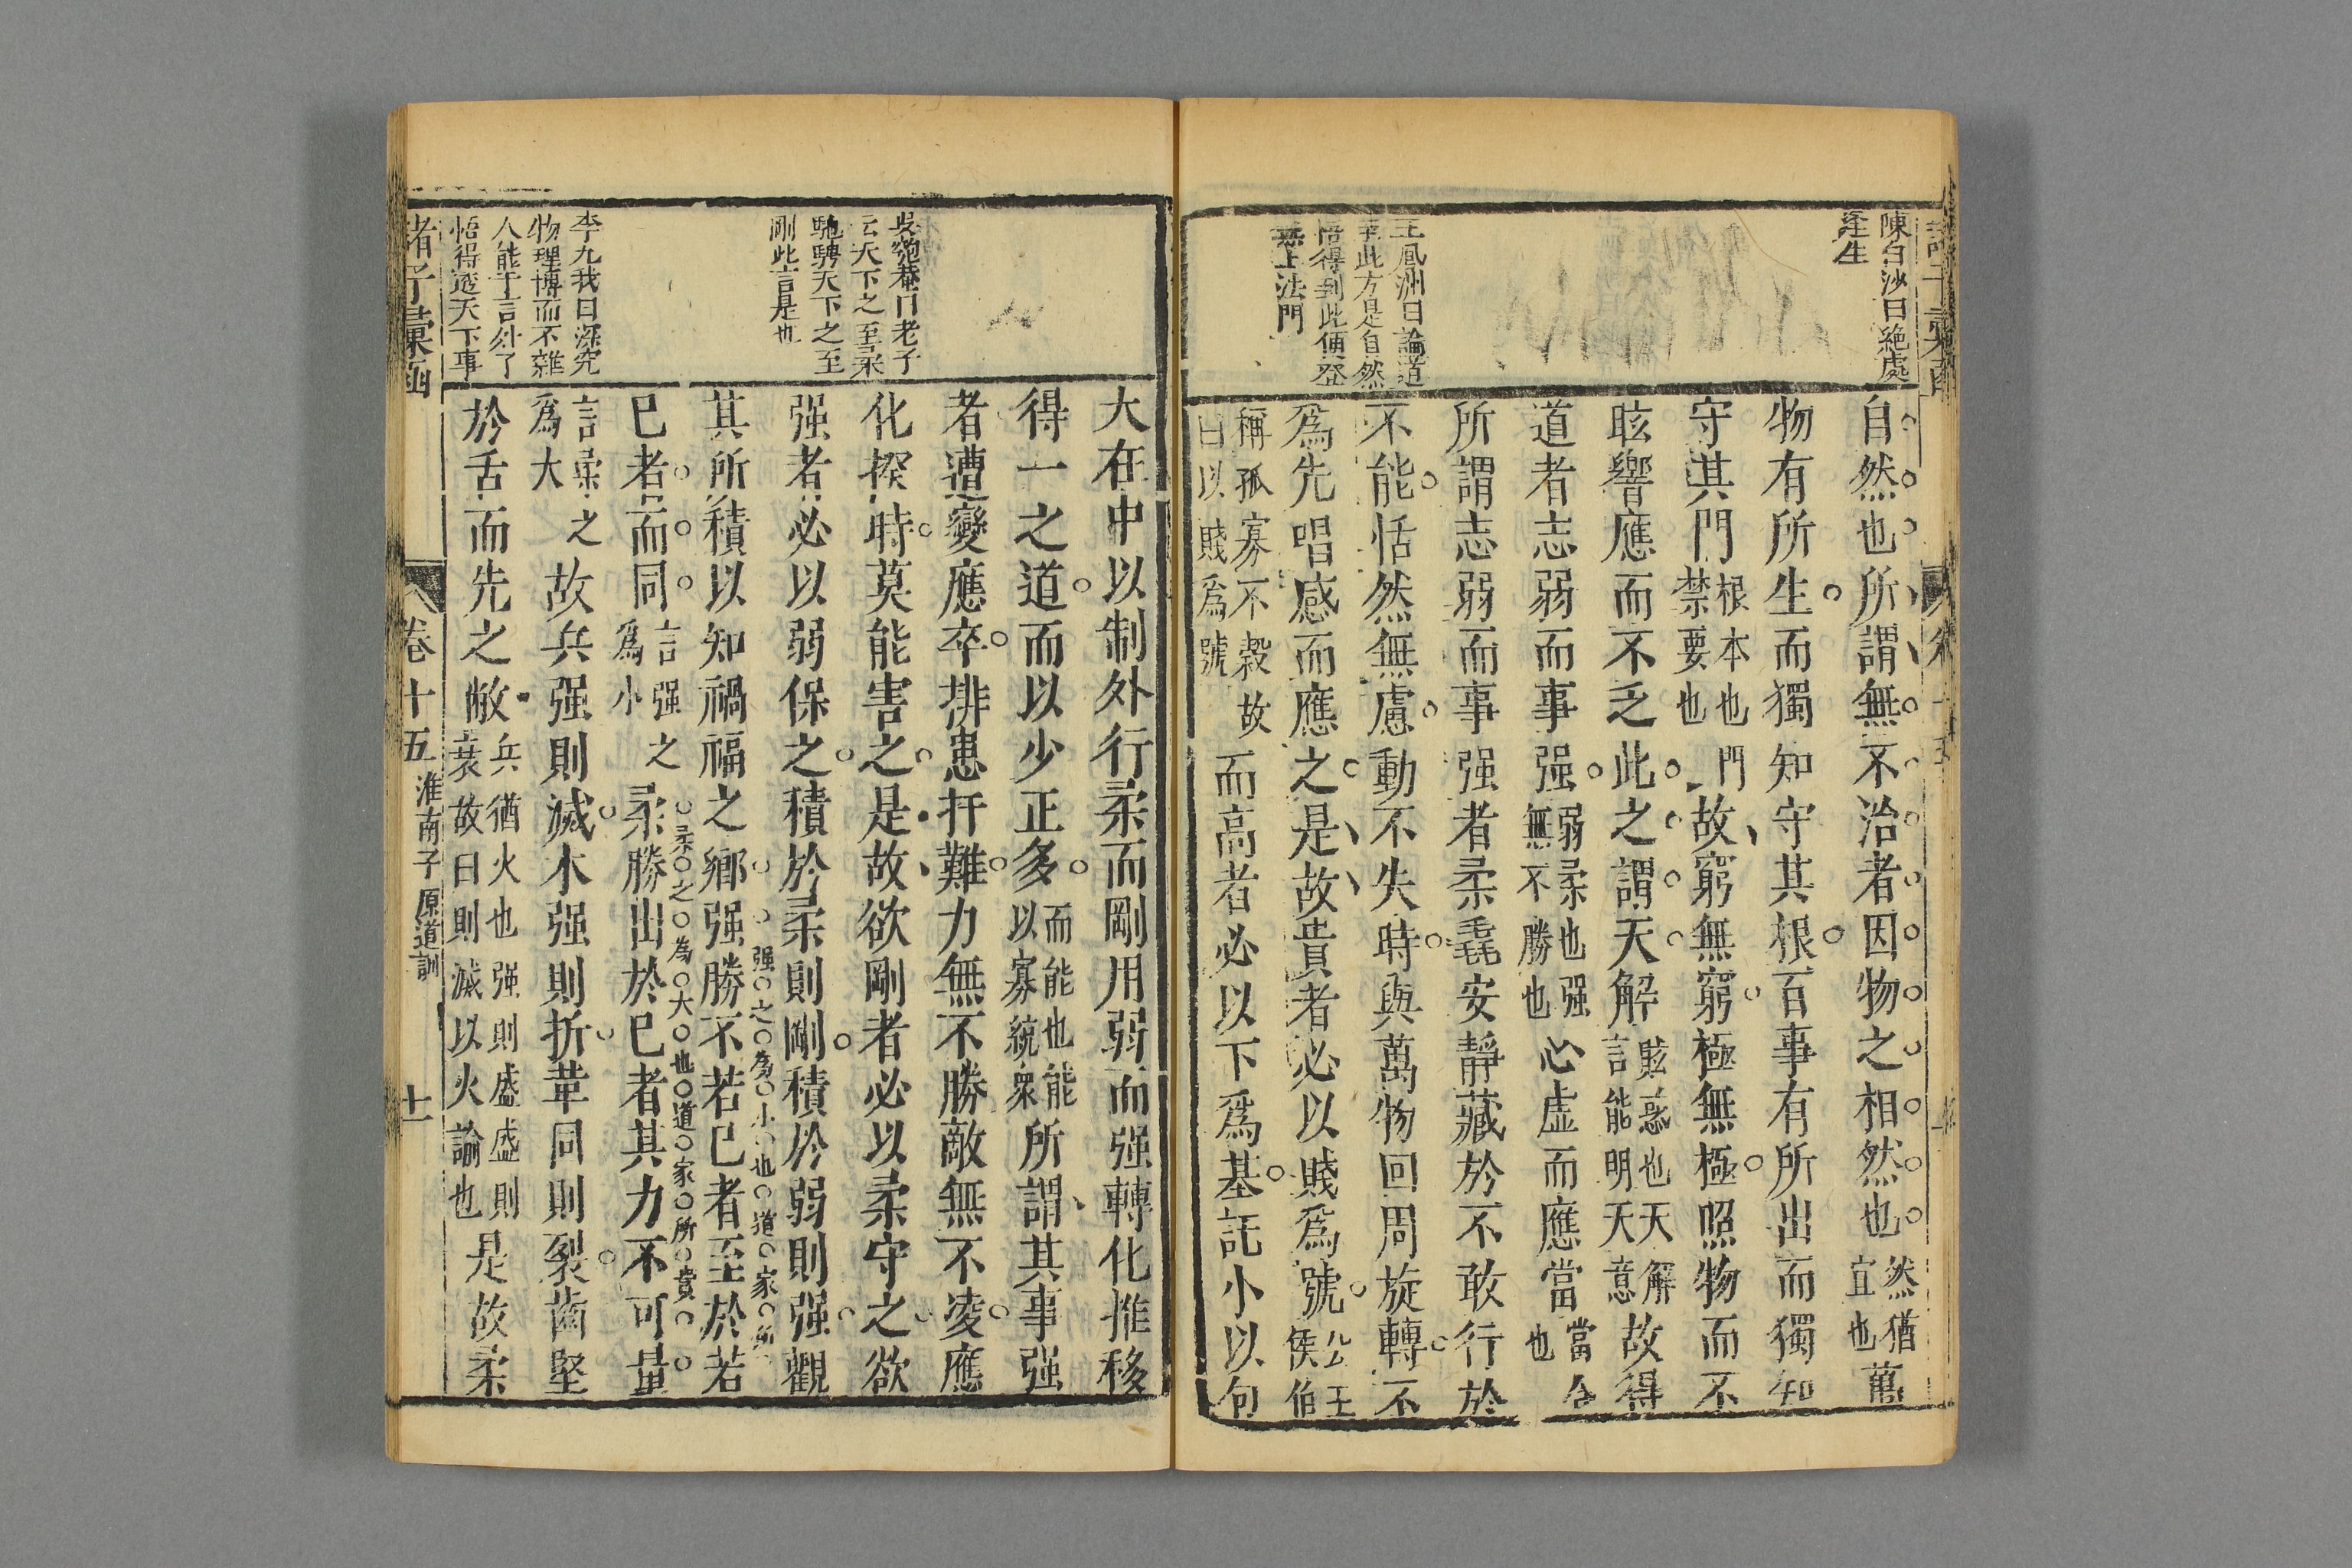 陳白沙曰絶處
逢生
王鳳洲曰論道
至此方是自然
悟得到此便登
無上法門
自然也所謂無不治者因物之相然也然猶宜也萬
物有所生而獨知守其根百事有所出而獨知
守其門根本也門禁要也故窮無窮極無極照物而不
眩響應而不乏此之謂天解眩惑也天解言能明天意故得
道者志弱而事强弱柔也强無不勝也心虛而應當當合也
所謂志弱而事强者柔毳安靜藏於不敢行於
不能恬然無慮動不失時與萬物回周旋轉不
爲先唱感而應之是故貴者必以賤爲號公王侯伯
稱孤寡不穀故曰以賤爲號而高者必以下爲基託小以包
吳匏菴曰老子
云天下之至柔
馳騁天下之至
剛此言是也
李九我曰深究
物理博而不雜
人能于言外了
悟得透天下事
大在中以制外行柔而剛用弱而强轉化推移
得一之道而以少正多而能也能以寡統衆所謂其事强
者遭變應卒排患扞難力無不勝敵無不凌應
化揆時莫能害之是故欲剛者必以柔守之欲
强者必以弱保之積於柔則剛積於弱則强觀
其所積以知禍福之鄉强勝不若已者至於若
强之爲小也道家所
已者而同言强之爲小柔勝出於已者其力不可量
柔之為大也道家所貴
言柔之爲大故兵强則滅木强則折革固則裂齒堅
於舌而先之敝兵猶火也强則盛盛則衰故曰則滅以火諭也是故柔
諸子彙函
卷十五
淮南子 原道訓
十一